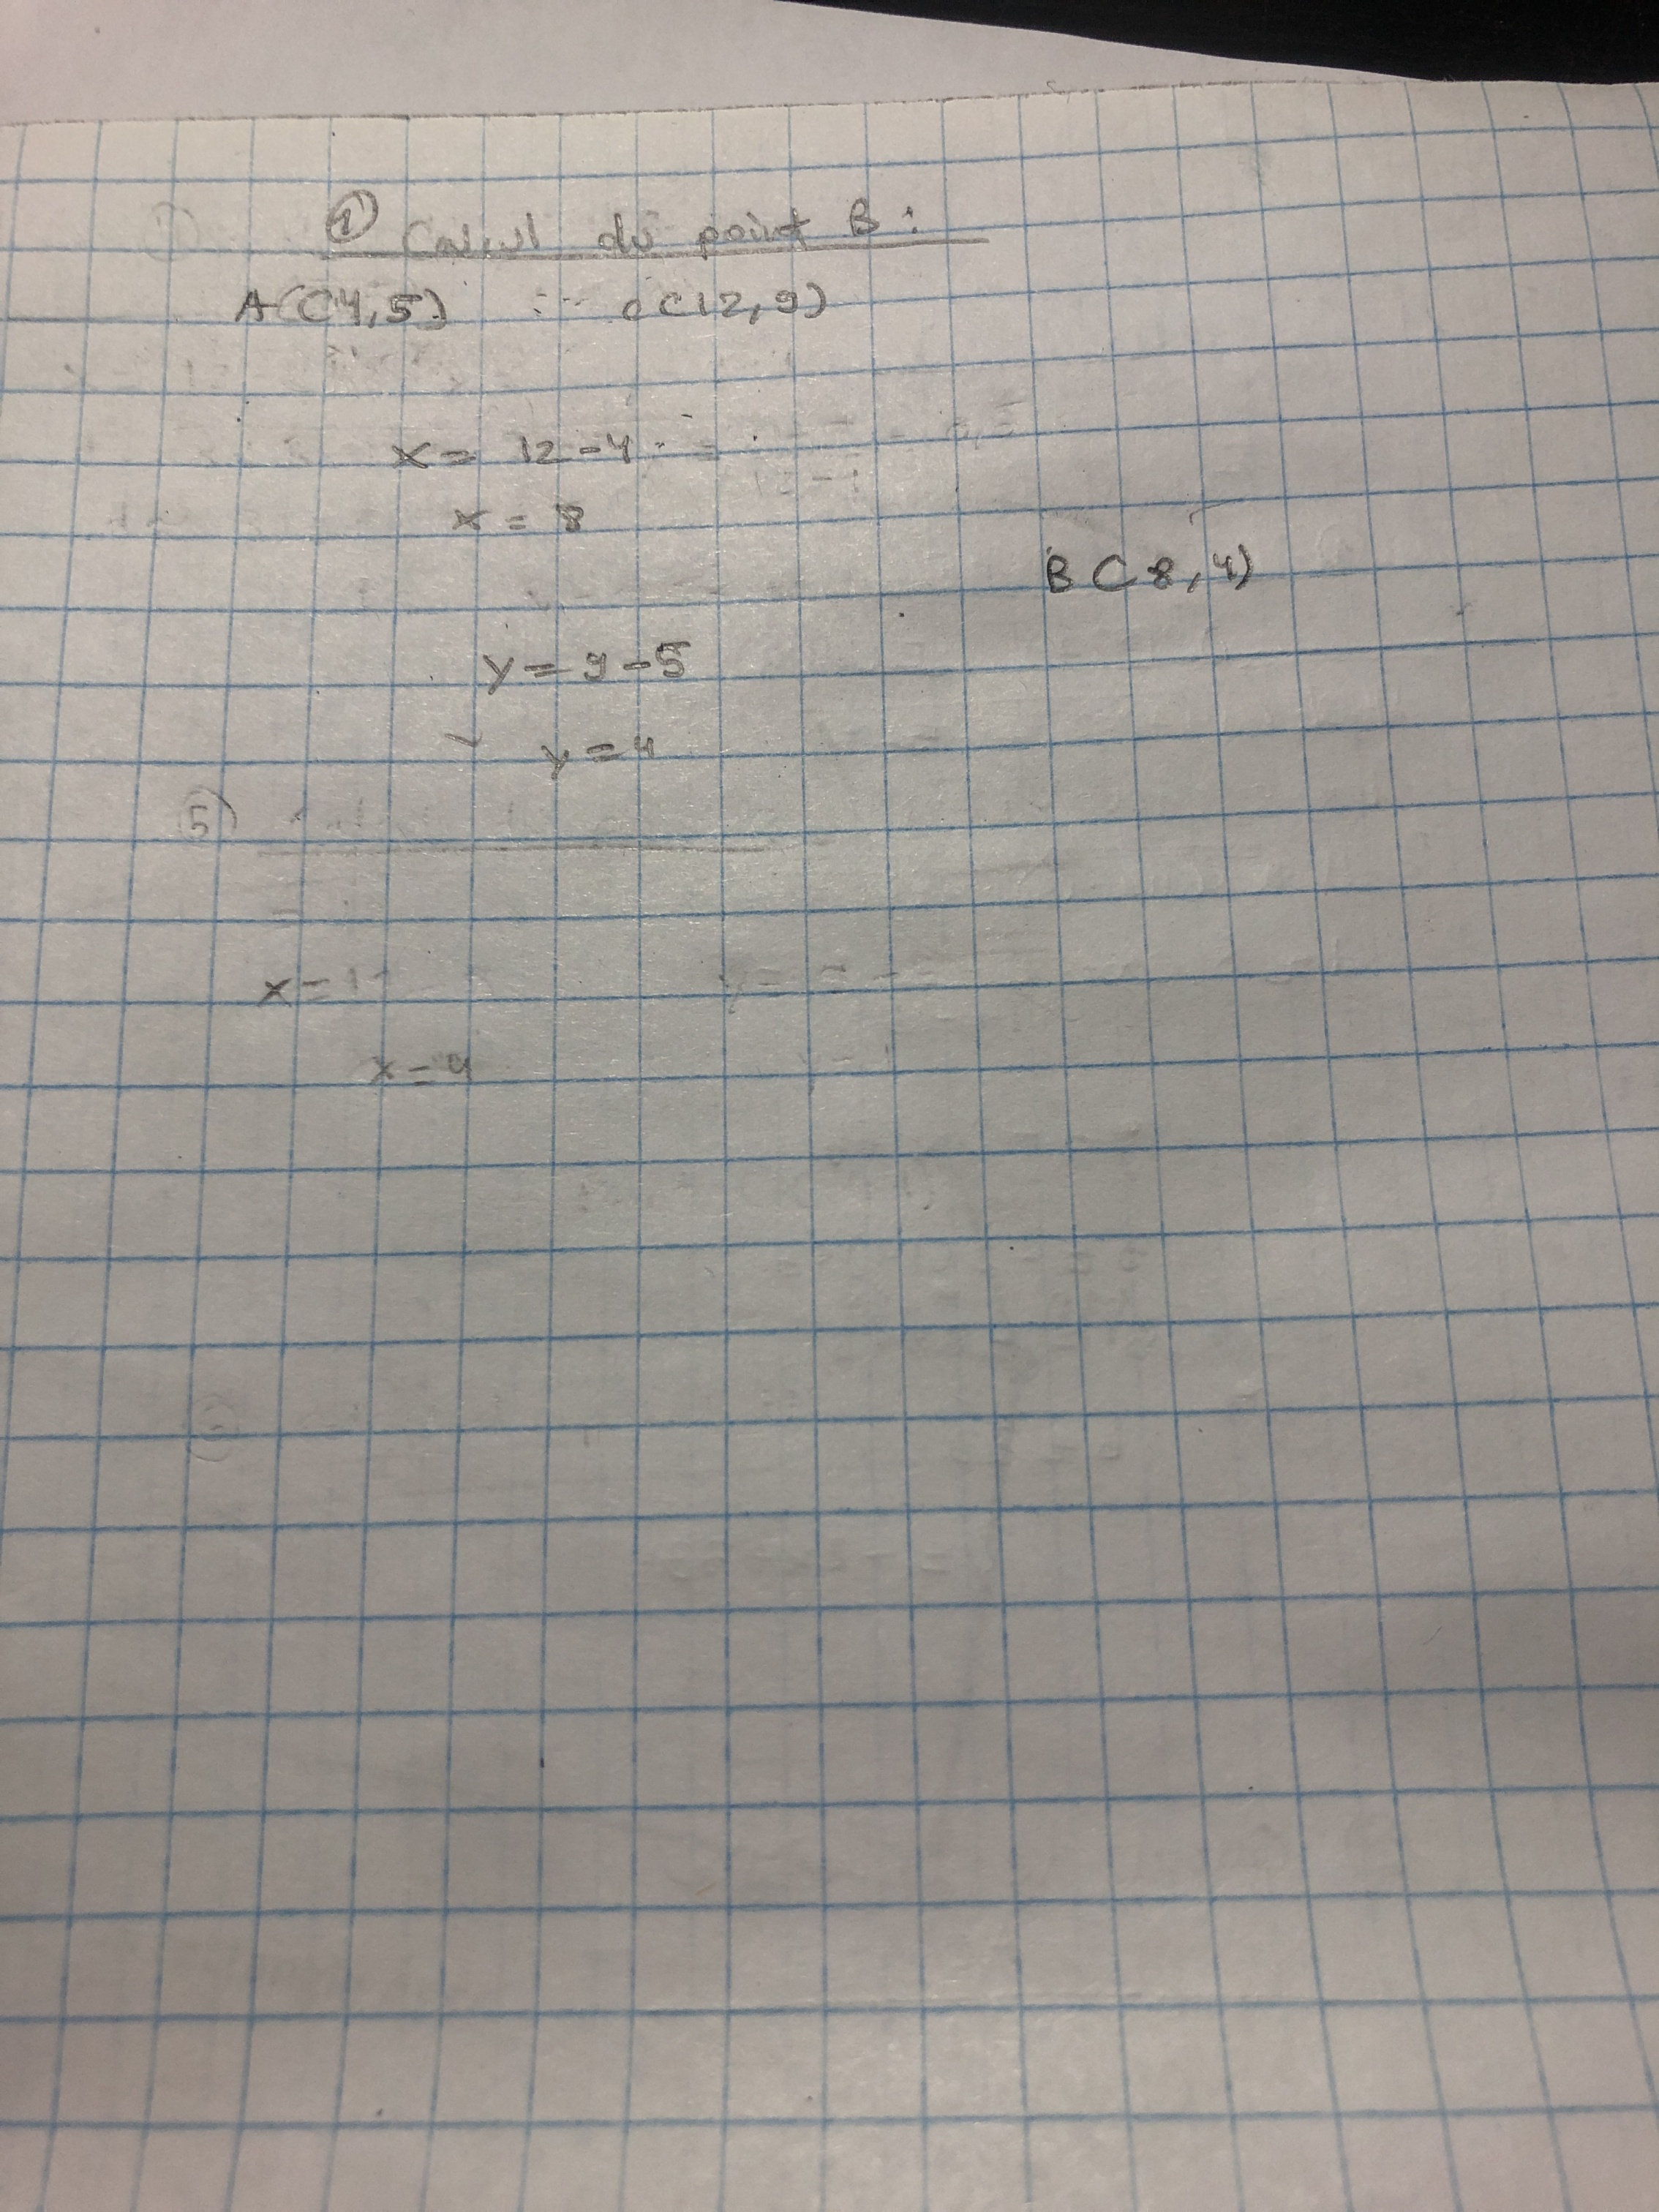 ① Calcul du point B :
A(4,5) c(12,9)
x = 12-4
x = 8
B(8,4)
y = 9-5
y = 4
⑤
x =
x = 4